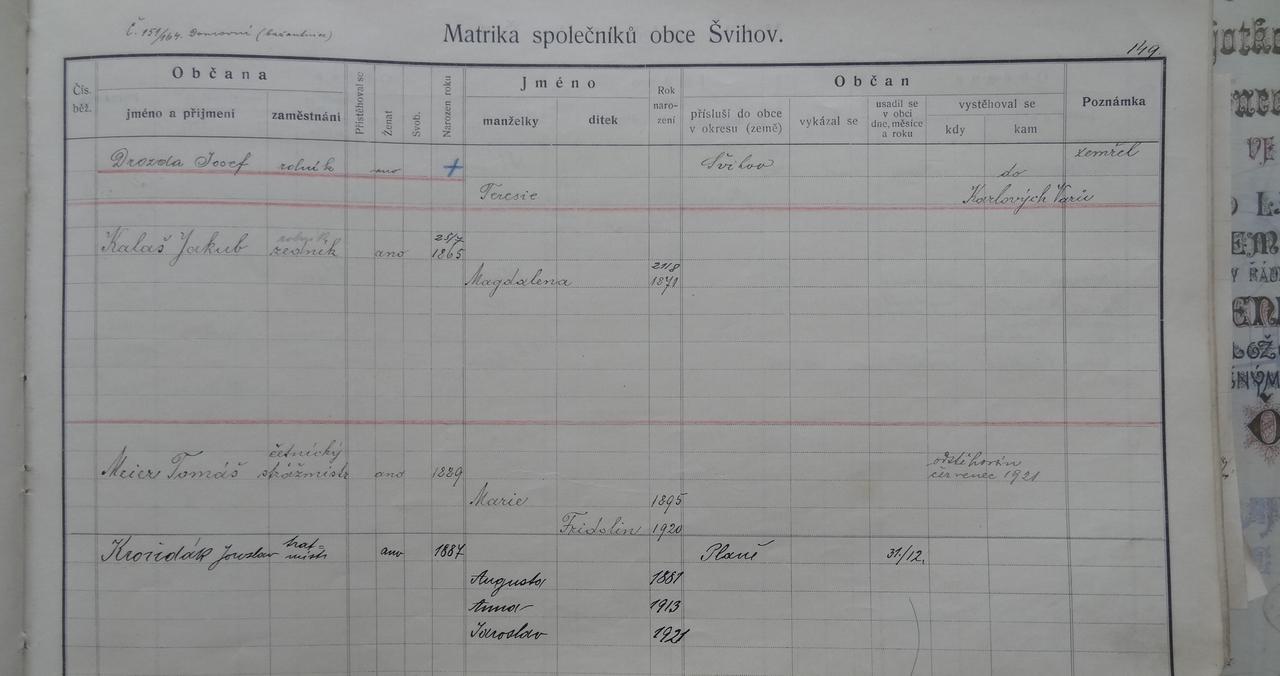 Č. 159/164. Domovní
Matrika společníků obce Švihov.
149
Občana
Jméno
Občan
Čís. běž.
jméno a přijmení
zaměstnání
Přistěhoval se
Ženat
Svob.
Narozen roku
manželky
dítek
Rok naro- zení
přísluší do obce v okresu (země)
vykázal se
usadil se v obci dne, měsíce a roku
vystěhoval se
kdy
kam
Poznámka
Drozda Josef rolník ano + Švihov zemřel
Teresie do Karlových Varů
Kalaš Jakub zedník ano 25/7 1865
Magdalena 21/8 1871
Meier Tomáš četnický strážmistr ano 1889 odstěhován červenec 1921
Marie 1895
Fridolin 1920
Jaroslav ano 1887 Planě 31/12.
Augusta 1881
Anna 1913
Jaroslav 1921